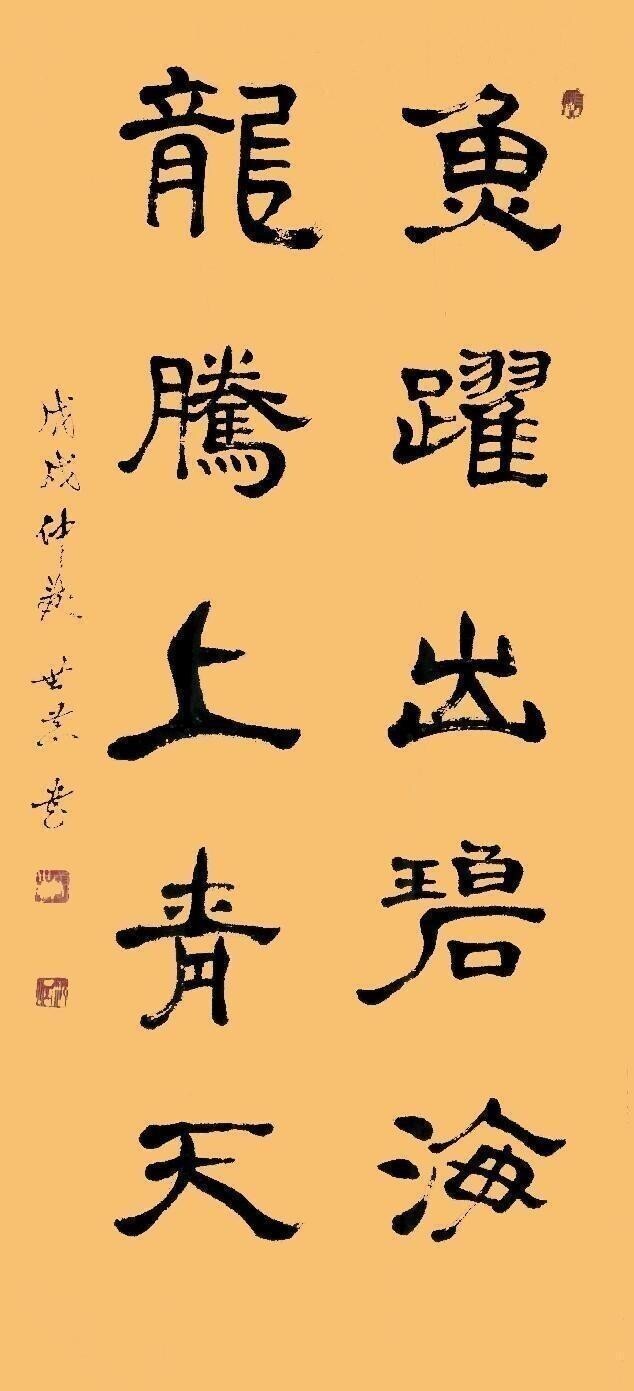 魚躍出碧海
龍騰上青天
戊戌仲秋 世崇書